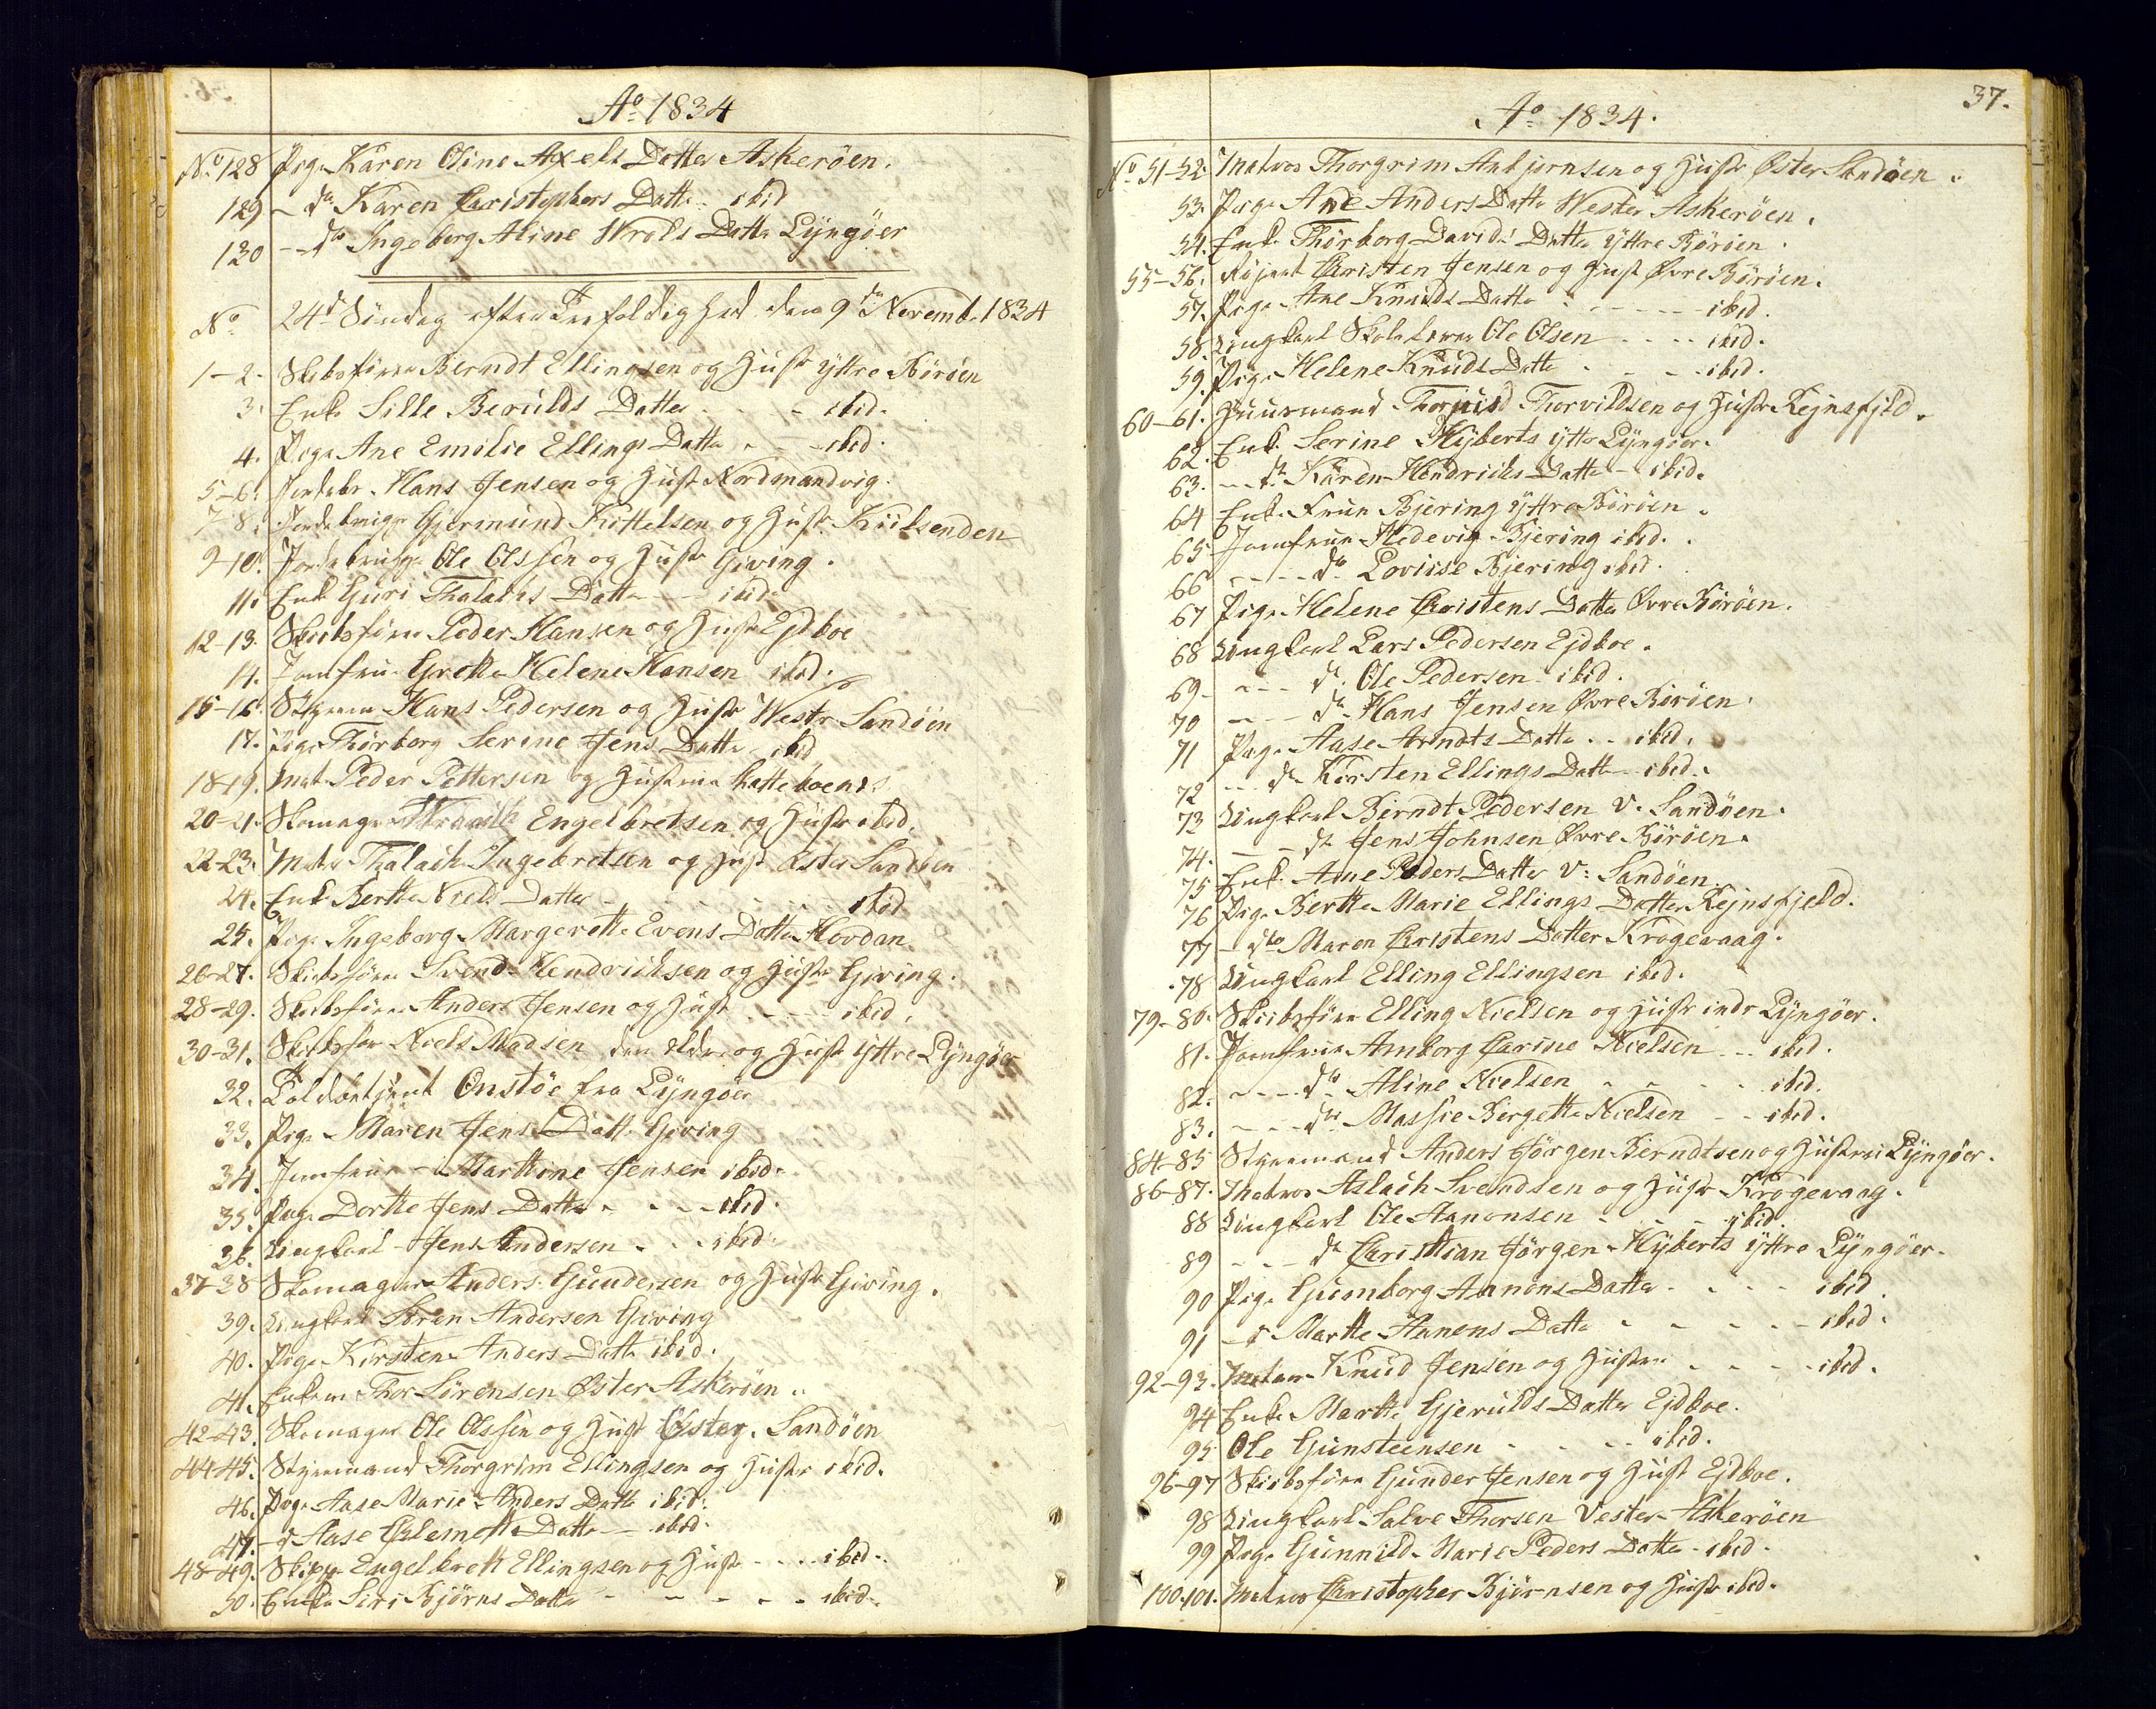 Ao 1834
No 128 Pige Karen Oline Axels Datter Askerøen.
129 – do Karen Christophers Datte ibid
130 – do Ingeborg Aline Wrols Datte Lyngøer
No 24de Søndag efter Trefoldighed den 9de Novemb. 1834
1-2. Skibsfører Berndt Ellingsen og Hustr yttre Böröen
3. Enke Sille Berulds Datter - ibid.
4. Pige Ane Emilie Ellings Datte - ibid.
5-6. Hans Jensen og Hustr Nordmandvig.
7-8. Jordebruger Gjermund Kittelsen og Hustr Kiilsenden
9-10. Jordebruger Ole Olssen og Hustr Giving.
11. Enke Guri Thalachs Datte - ibid.
12-13. Skibsfører Peder Hansen og Hustr Ejdboe
14. Jomfru Grethe Helene Hansen ibid.
15-16. Styrm Hans Pedersen og Hustr Westr Sandöen
17. Pige Thorborg Serine Jens Datte ibid
18-19. Mat. Peder Pettersen og Hustrue Katteboen
20-21. Skomager Engelbretsen og Hustr ibid.
22-23. Matr Thalach Ingebretsen og Hustr Öster Sandöen
24. Enke Berthe Niels Datter - - - ibid
25. Pige Ingeborg Margerethe Evens Datte Hovdan
26-27. Skibsfører Svend Hendrichsen og Hustr Giving.
28-29. Skibsfører Anders Jensen og Hustr - - - ibid.
30-31. Skibsför Niels Madsen den eldre og Hustr yttre Lyngøer
32. Toldbetjent Onstöe fra Lyngøer
33. Pige Maren Jens Datte Giving
34. Jomfrue Marthine Jensen ibid.
35. Pige Dorthe Jens Datte - - - ibid.
36. Ungkarl Jens Andersen - - ibid.
37-38 Skomager Anders Gundersen og Hustr Giving.
39. Ungkarl Sören Andersen Giving
40. Pige Kirsten Anders Datte ibid.
41. Enkem Thor Sørensen Øster Askerøen.
42-43. Skomager Ole Olssen og Hustr Öster Sandöen
44-45. Styrmand Thorgrim Ellingsen og Hustr ibid.
46. Pige Aase Marie Anders Datte ibid.
47. – d Aase Clemets Datte – ibid.
48-49. Skipp. Engelbrett Ellingsen og Hustr - - - ibid.
50. Enke Siri Bjørns Datte - - - - ibid.
37.
Ao 1834.
No 51-52. Matros Thorgrim Anbjørnsen og Hustr Øster Sandøen.
53. Pige Ane Anders Datte Wester Askerøen.
54. Enke Thorborg Davids Datte yttre Börøen.
55-56. Christen Jensen og Hust Øvre Börøen.
57. Pige Ane Knuds Datte - - - - ibid.
58. Ungkarl Skolelærer Ole Olsen - - - ibid.
59. Pige Helene Knuds Datte - - - ibid.
60-61. Huusmand Thorvildsen og Hustr Rejnsfjeld.
62. Enke Serine Hyberts yttr Lyngøer.
63. – d. Karen Hendrichs Datte - ibid.
64 Enke Frue Bjering yttre Börøen.
65 Jomfrue Hedevig Bjering ibid.
66 - - - do Lovisse Bjering ibid.
67 Pige Helene Christens Datte Øvre Börøen.
68 Ungkarl Lars Pedersen Ejdboe.
69 - - - do Ole Pedersen ibid.
70 - - - do Hans Jensen Øvre Börøen.
71 Pige Aase Arndts Datte - - ibid.
72 - - do Kirsten Ellings Datte ibid.
73 Ungkarl Berndt Pedersen V. Sandöen.
74. - - do Jens Johnsen Øvre Börøen.
75 Enke Ane Peders Datter V: Sandöen
76 Pige Berthe Marie Ellings Datte Rejnsfjeld.
77 – do Maren Christens Datter Krogevaag.
78 Ungkarl Elling Ellingsen ibid.
79-80. Skibsfører Elling Nielsen og Hustr indr Lyngøer.
81. Jomfrue Amborg Carine Nielsen - - ibid.
82. - - - do Aline Nielsen - - - - ibid.
83. - - - do Massie Birgette Nielsen - - ibid.
84-85 Styrmand Anders Jörgen Berndtsen og Hustrue Lyngøer.
86-87. Matros Aslach Svendsen og Hustr Krogevaag.
88 Ungkarl Ole Aanonsen - - - - ibid.
89 - - - do Christian Jörgen Hyberts yttre Lyngøer.
90 Pige Gumborg Aanons Datte - - - ibid.
91 – d Marthe Aanons Datte - - - - ibid.
92-93. Matros Knud Jensen og Hustrue - - - ibid.
94 Enke Marthe Gjerulds Datter Ejdboe.
95 Ole Gunsteensen - - - ibid.
96-97 Skibsfører Gunder Jensen og Hustr Ejdboe.
98 Ungkarl Salve Thorsen Vester Askerøen
99 Pige Gunnild Marie Peders Datte - ibid.
100.101. Matros Christopher Bjørnsen og Hustr ibid.